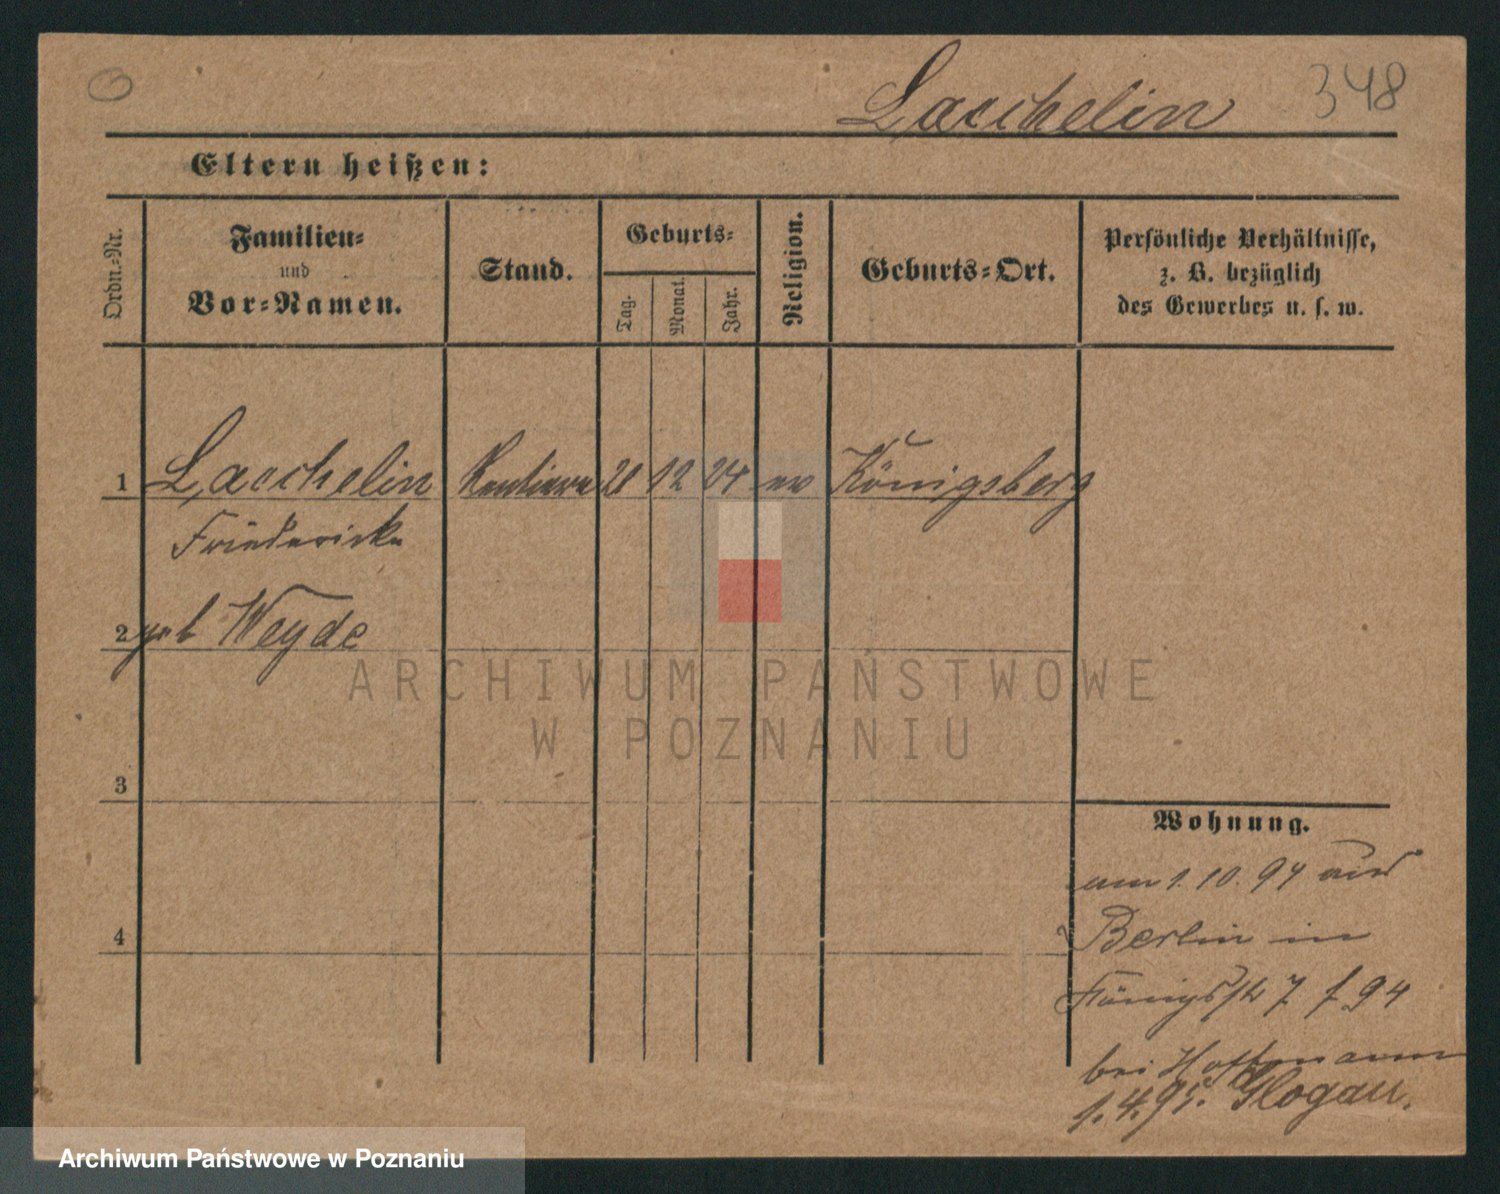 Lacchelin 348
Eltern heißen:
Ordn.-Nr.
Familien-
und
Vor-Namen.
Stand.
Geburts-
Tag.
Monat.
Jahr.
Religion.
Geburts-Ort.
Persönliche Verhältnisse,
z. B. bezüglich
des Gewerbes u. s. w.
1 Lacchelin Rentiere 21 12 24 ev Königsberg
Friedericke
2 geb Weyde
3
4
Wohnung.
am 1. 10. 94 aus
Berlin in
Königsstr 7 f 94
bei Hoffmann
1.4.95. Glogau.
ARCHIWUM PAŃSTWOWE
W POZNANIU
Archiwum Państwowe w Poznaniu